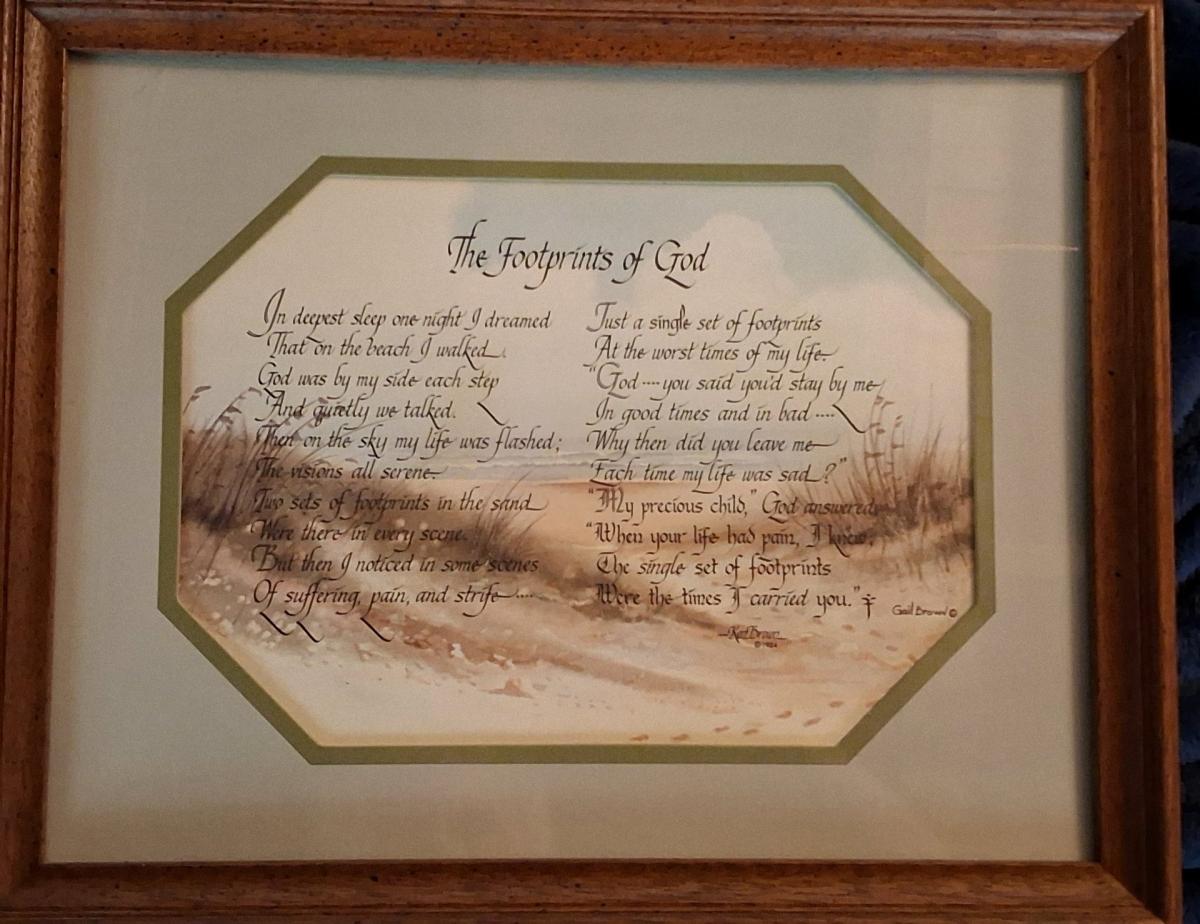 The Footprints of God
In deepest sleep one night I dreamed
That on the beach I walked.
God was by my side each step
And quietly we talked.
Then on the sky my life was flashed;
The visions all serene
Two sets of footprints in the sand
Were there in every scene.
But then I noticed in some scenes
Of suffering, pain, and strife ····
Just a single set of footprints
At the worst times of my life.
"God ···· you said you'd stay by me
In good times and in bad ····
Why then did you leave me
Each time my life was sad?"
"My precious child," God answered,
"When your life had pain, I knew,
The single set of footprints
Were the times I carried you."
Gail Brown ©
—Ken Brown
© 1984